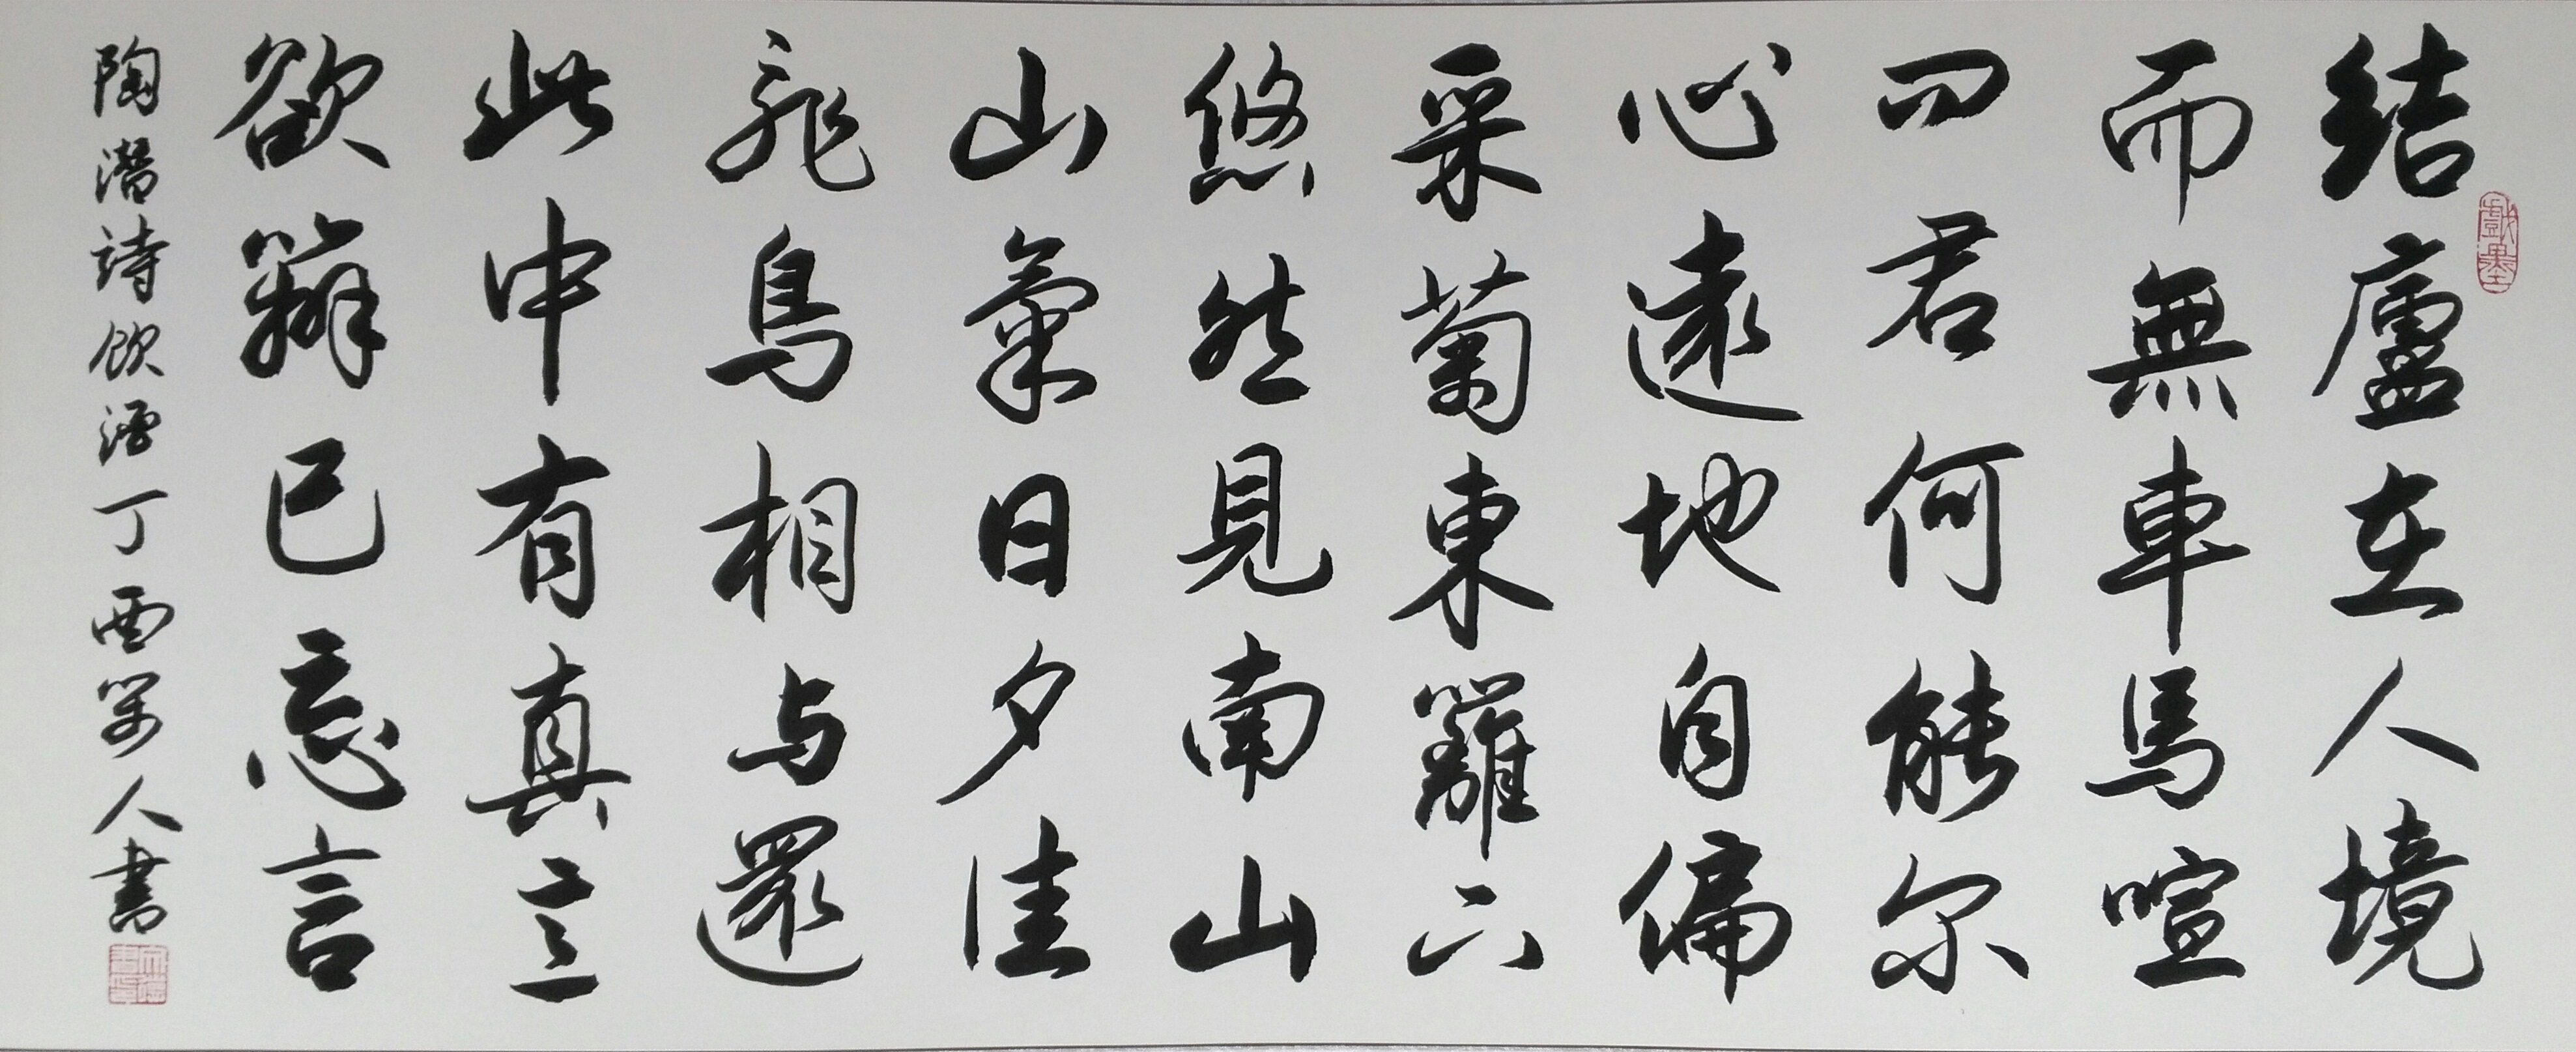 戲墨
結廬在人境
而無車馬喧
問君何能尔
心遠地自偏
采菊東籬下
悠然見南山
山氣日夕佳
飛鳥相与還
此中有真意
欲辯已忘言
陶潛詩飲酒丁酉人書